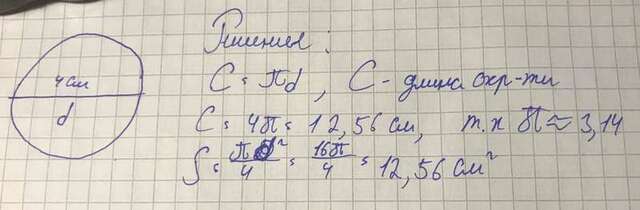 Решение:
4 см
d
C = πd, C - длина окр-ти
C = 4π = 12,56 см, т.к π ≈ 3,14
S = πd²/4 = 16π/4 = 12,56 см²